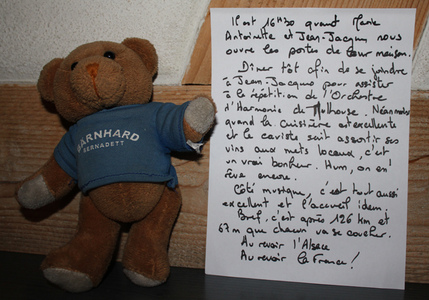 BARNHARD
BERNADETT
Il est 16h30 quand Marie
Antoinette et Jean-Jacques nous
ouvre les portes de leur maison.
Dîner tôt afin de se joindre
à Jean-Jacques pour assister
à la répétition de l'Orchestre
d'Harmonie de Mulhouse. Néanmoins
quand la cuisinière est excellente
et le caviste sait assortir ses
vins aux mets locaux, c'est
un vrai bonheur. Hum, on en
rêve encore.
Côté musique, c'est tout aussi
excellent et l'accueil idem
Bref, c'est après 126 km et
67m que chacun va se coucher.
Au revoir l'Alsace
Au revoir la France!